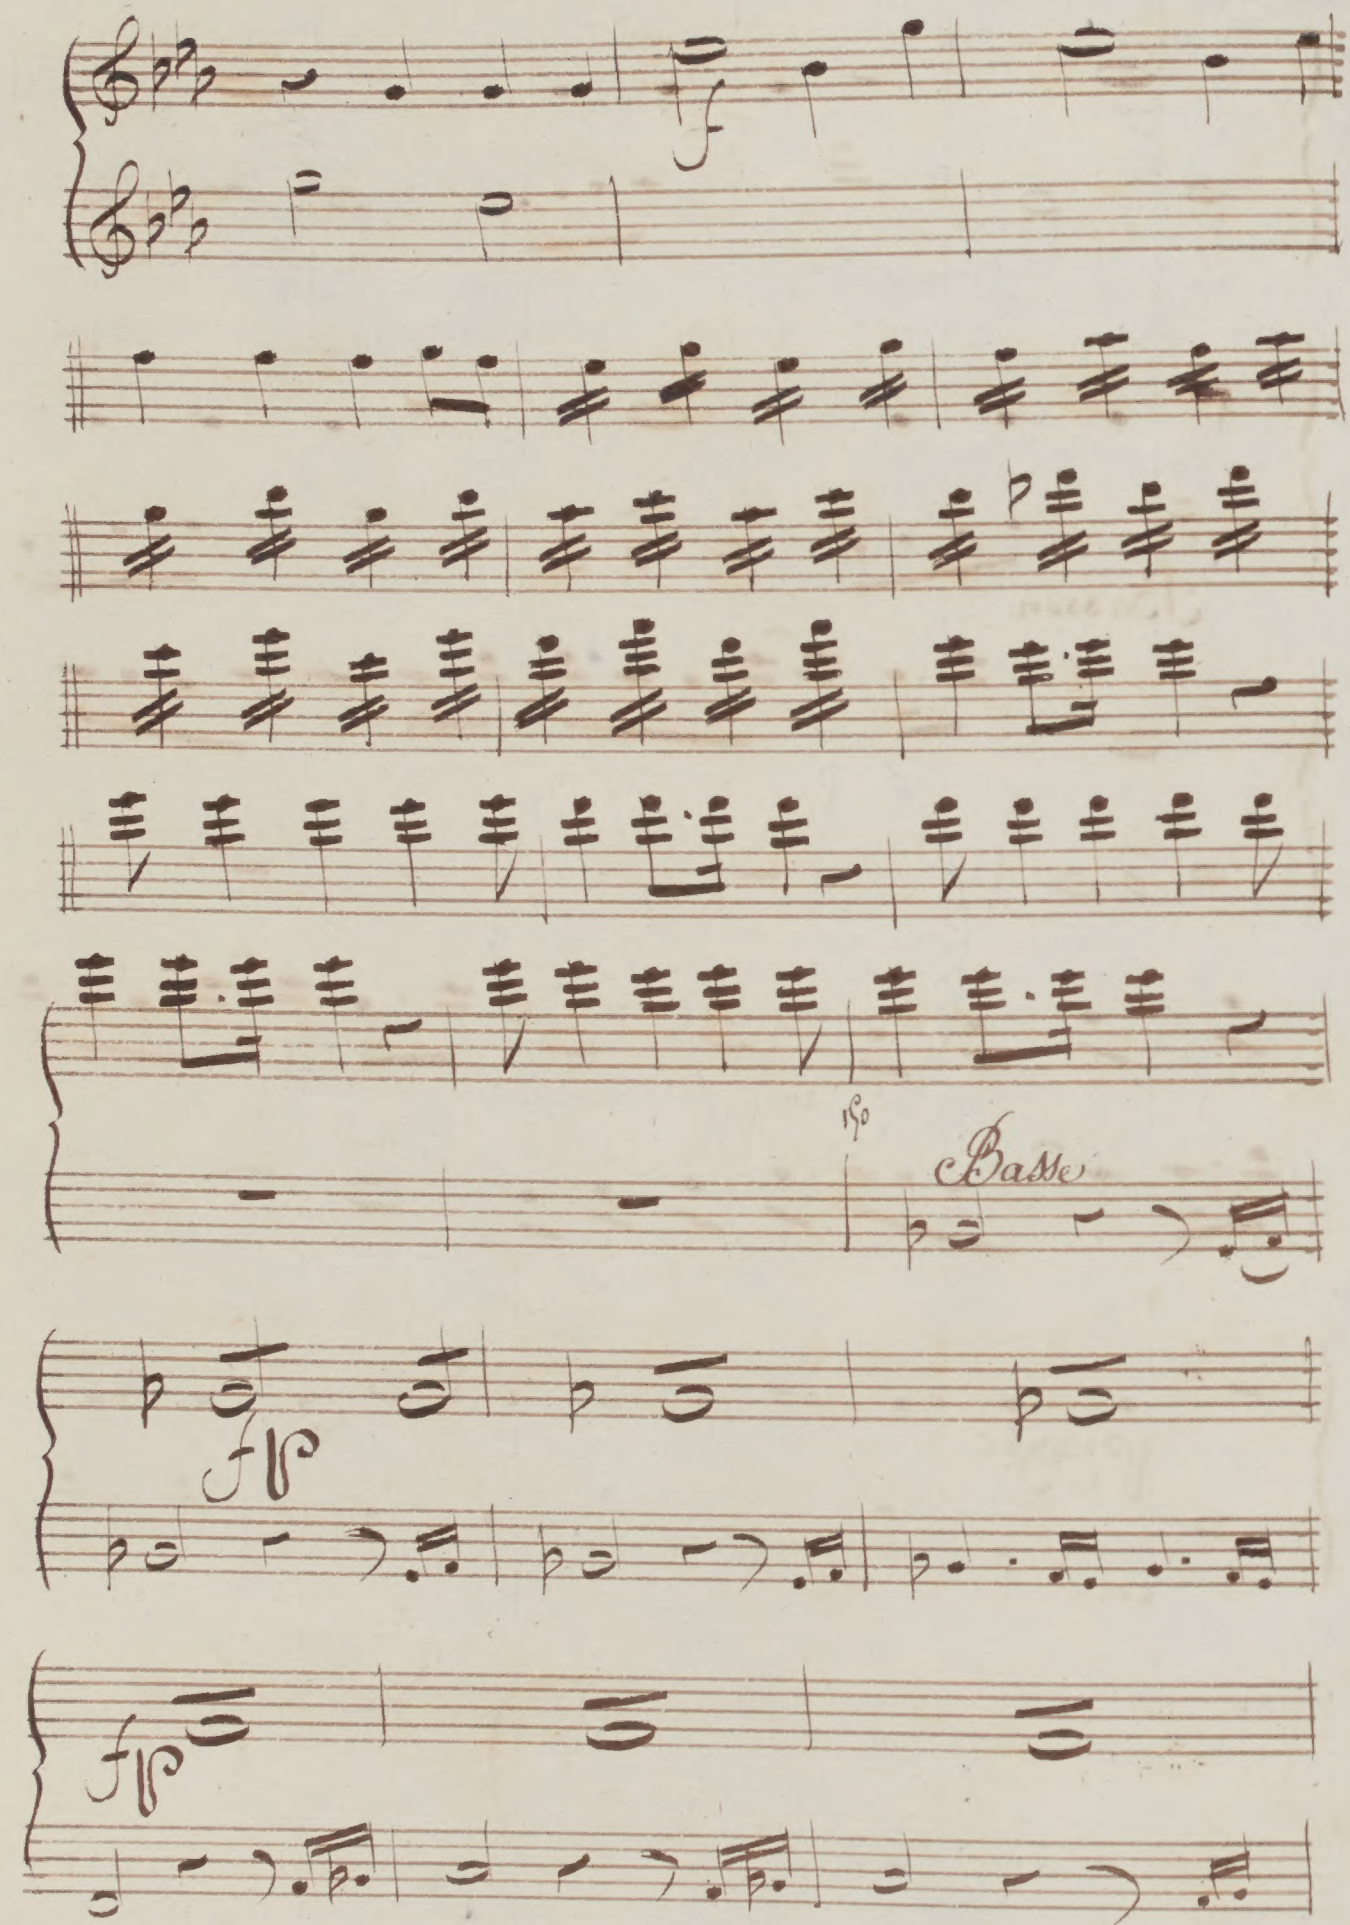 f
150
Basse
fp
fp